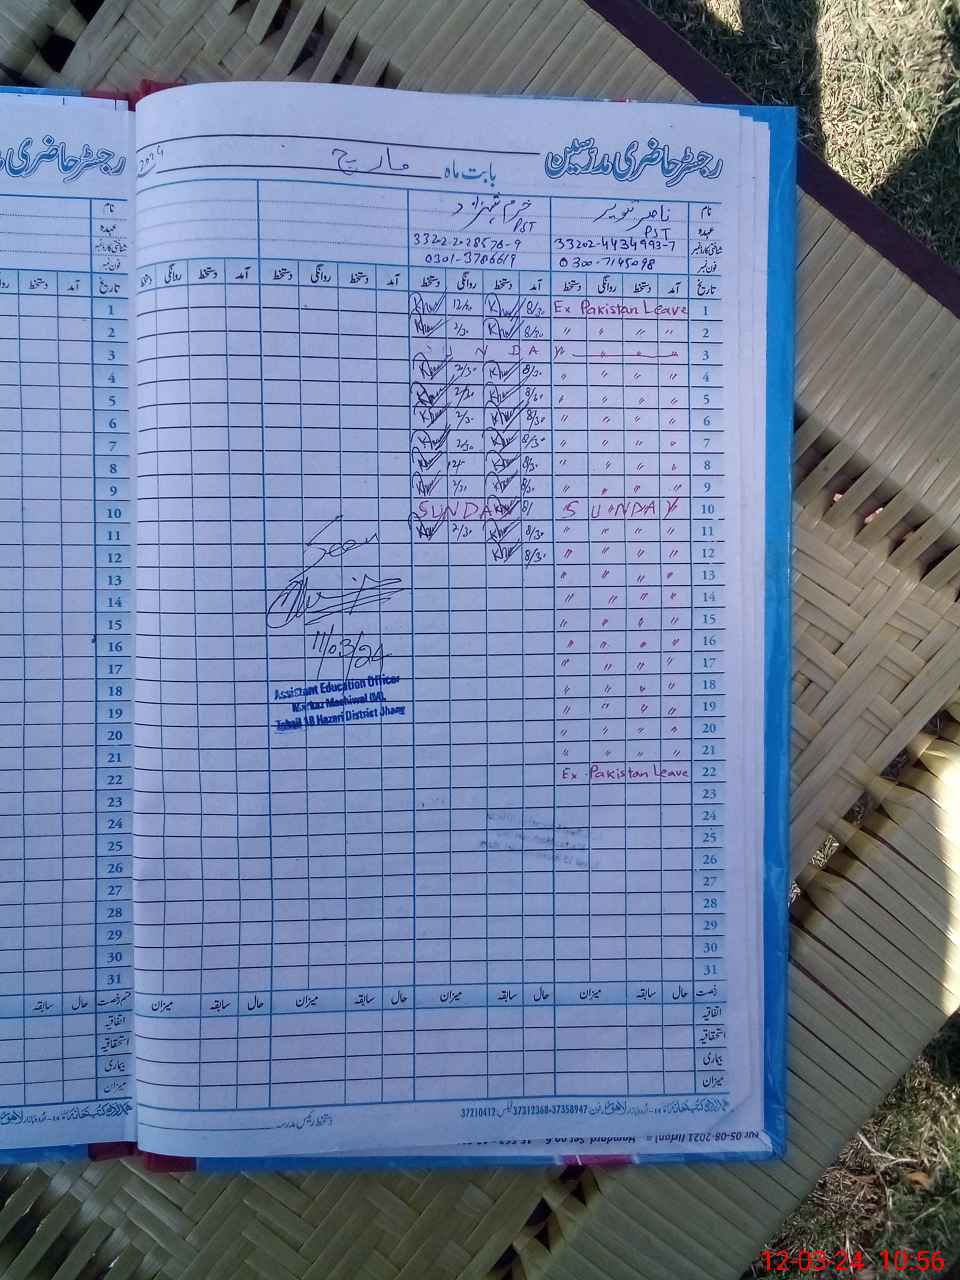 رجسٹر حاضری مدرسین
بابت ماہ مارچ 2024
نام ناصر تنویر خرم شہزاد
عہدہ PST PST
شناختی کارڈ نمبر 33202-4434993-7 33202-2028576-9
فون نمبر 0300-7145098 0301-3786619
تاریخ آمد دستخط روانگی دستخط آمد دستخط روانگی دستخط آمد دستخط روانگی دستخط آمد دستخط روانگی دستخط
1 Ex Pakistan Leave 8/30 12/30
2 " " " " 8/30 2/30
3 " SUNDAY
4 " " " " 8/30 2/30
5 " " " " 8/30 2/30
6 " " " " 8/30 2/30
7 " " " " 8/30 2/30
8 " " " " 8/30 12/-
9 " " " " 8/30 2/30
10 SUNDAY SUNDAY 8/
11 " " " " 8/30 2/30
12 " " " " 8/30
13 " " " "
14 " " " "
15 " " " "
16 " " " "
17 " " " "
18 " " " "
19 " " " "
20 " " " "
21 " " " "
22 Ex-Pakistan Leave
23
24
25
26
27
28
29
30
31
Seen
11/03/24
Assistant Education Officer
Markaz Machiwal (M),
Tehsil 18 Hazari District Jhang
رخصت حال سابقہ میزان حال سابقہ میزان حال سابقہ میزان حال سابقہ میزان
اتفاقیہ
استحقاقیہ
بیماری
میزان
دستخط رئیس مدرسہ
37312368-37358947 فیکس 37210412
12-03-24 10:56